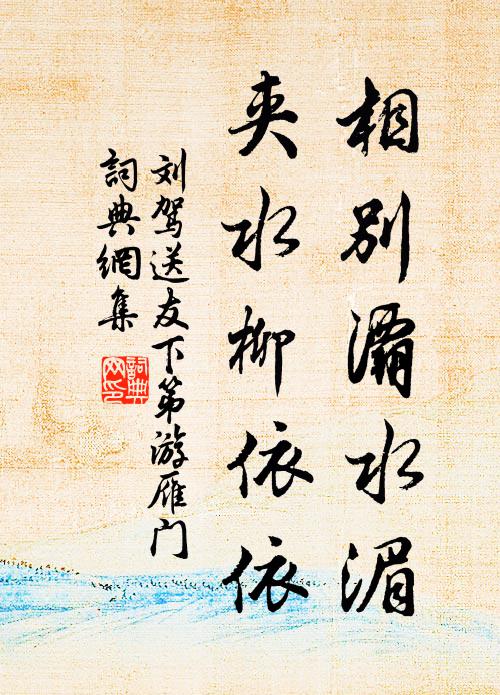 相别灞水湄
夹水柳依依
刘驾送友下第游雁门
詞典網集
詞典網印